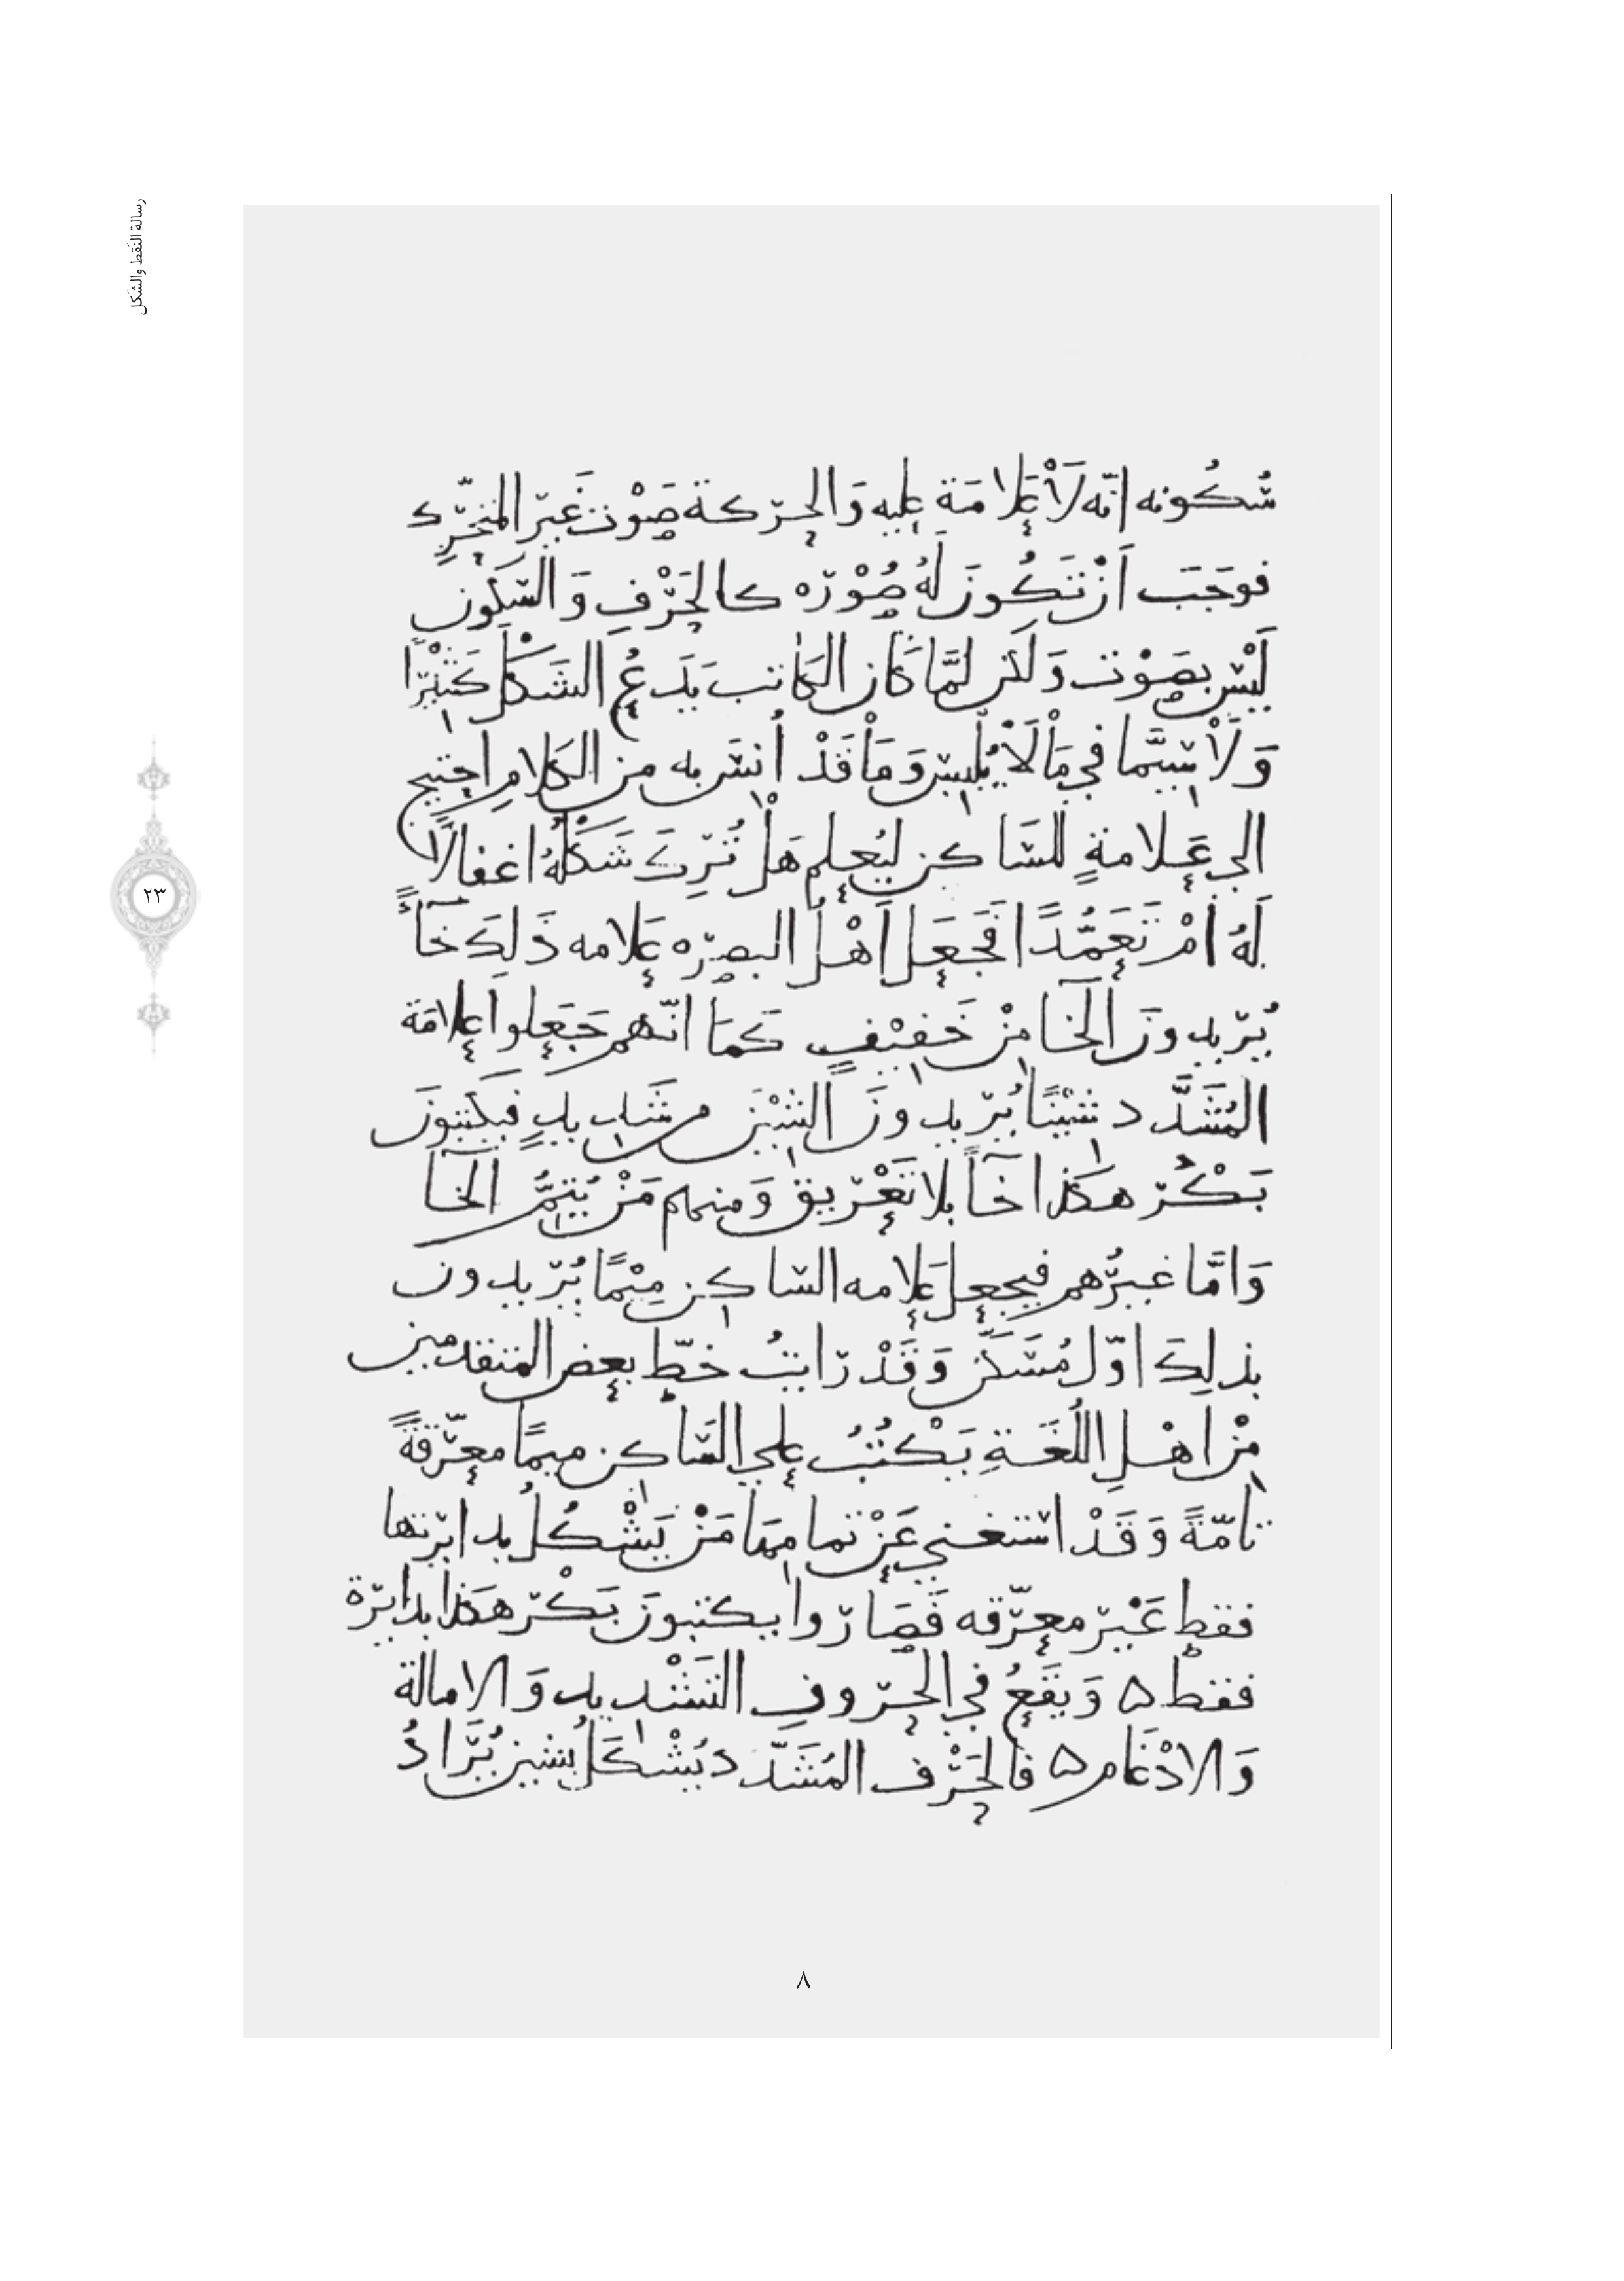 رسالة النَّقط والشَّكل
٢٣
سُكُونه انّه لَاْ عَلامَة عليه وَالحرَكة صَوْت غَير المتحرِّك
فوجَبَ اَنْ تَكُونَ لَهُ صُوْرَه كالحَرْفِ وَالسّكون
لَيْسَ بصَوْت وَلكن لمَّا كَان الكَاتب يَدَعُ الشَكلَ كَثيْرًا
وَلَاْ سيَّما في مَاْ لَاْ يُلبس وَمَاْ قَدْ اُنسَ به من الكَلامِ احتيج
الي عَلامةٍ للسَّاكن ليُعلم هَلْ تُرِكَ شَكلُهُ اغفالًا
لَهُ اَمْ تَعَمُّدًا فَجَعَل اَهْلُ البصرَه عَلامه ذَلِكَ خَآءً
يُريدونَ الخَا منْ خَفيْفٍ كَمَا انّهم جَعَلوا علامَة
المُشَدَّد شيْنًا يُريدونَ الشيْنَ من شَديدٍ فيكتبونَ
بَكْرَ هكذا خَآ بلا تَعْريق وَمنهم مَنْ يُتمُّ الخَا
وَامَّا غيرُهم فيجعل عَلامه السّاكن مِيْمًا يُريدون
بذلِكَ اوّل مُسَكّن وَقَدْ رَايتُ خطّ بعض المتقدمين
منْ اهْلِ اللُغَةِ يَكْتُبُ علي السَّاكن ميمًا معرّقةً
تامّةً وَقَدْ استغني عَنْ تمامهَا مَنْ يَشْكُلُ بدايرتها
فقط غَيْرَ معرّقه فَصَارَوا يكتبونَ بَكْرَ هكَذا بدايرَة
فقط ۵ وَيقَعُ في الحرَوفِ التَشْديد وَالامالة
وَالادْغَام ۵ فالحَرْف المُشدّد يُشْكَلُ بشين يُرَادُ
٨